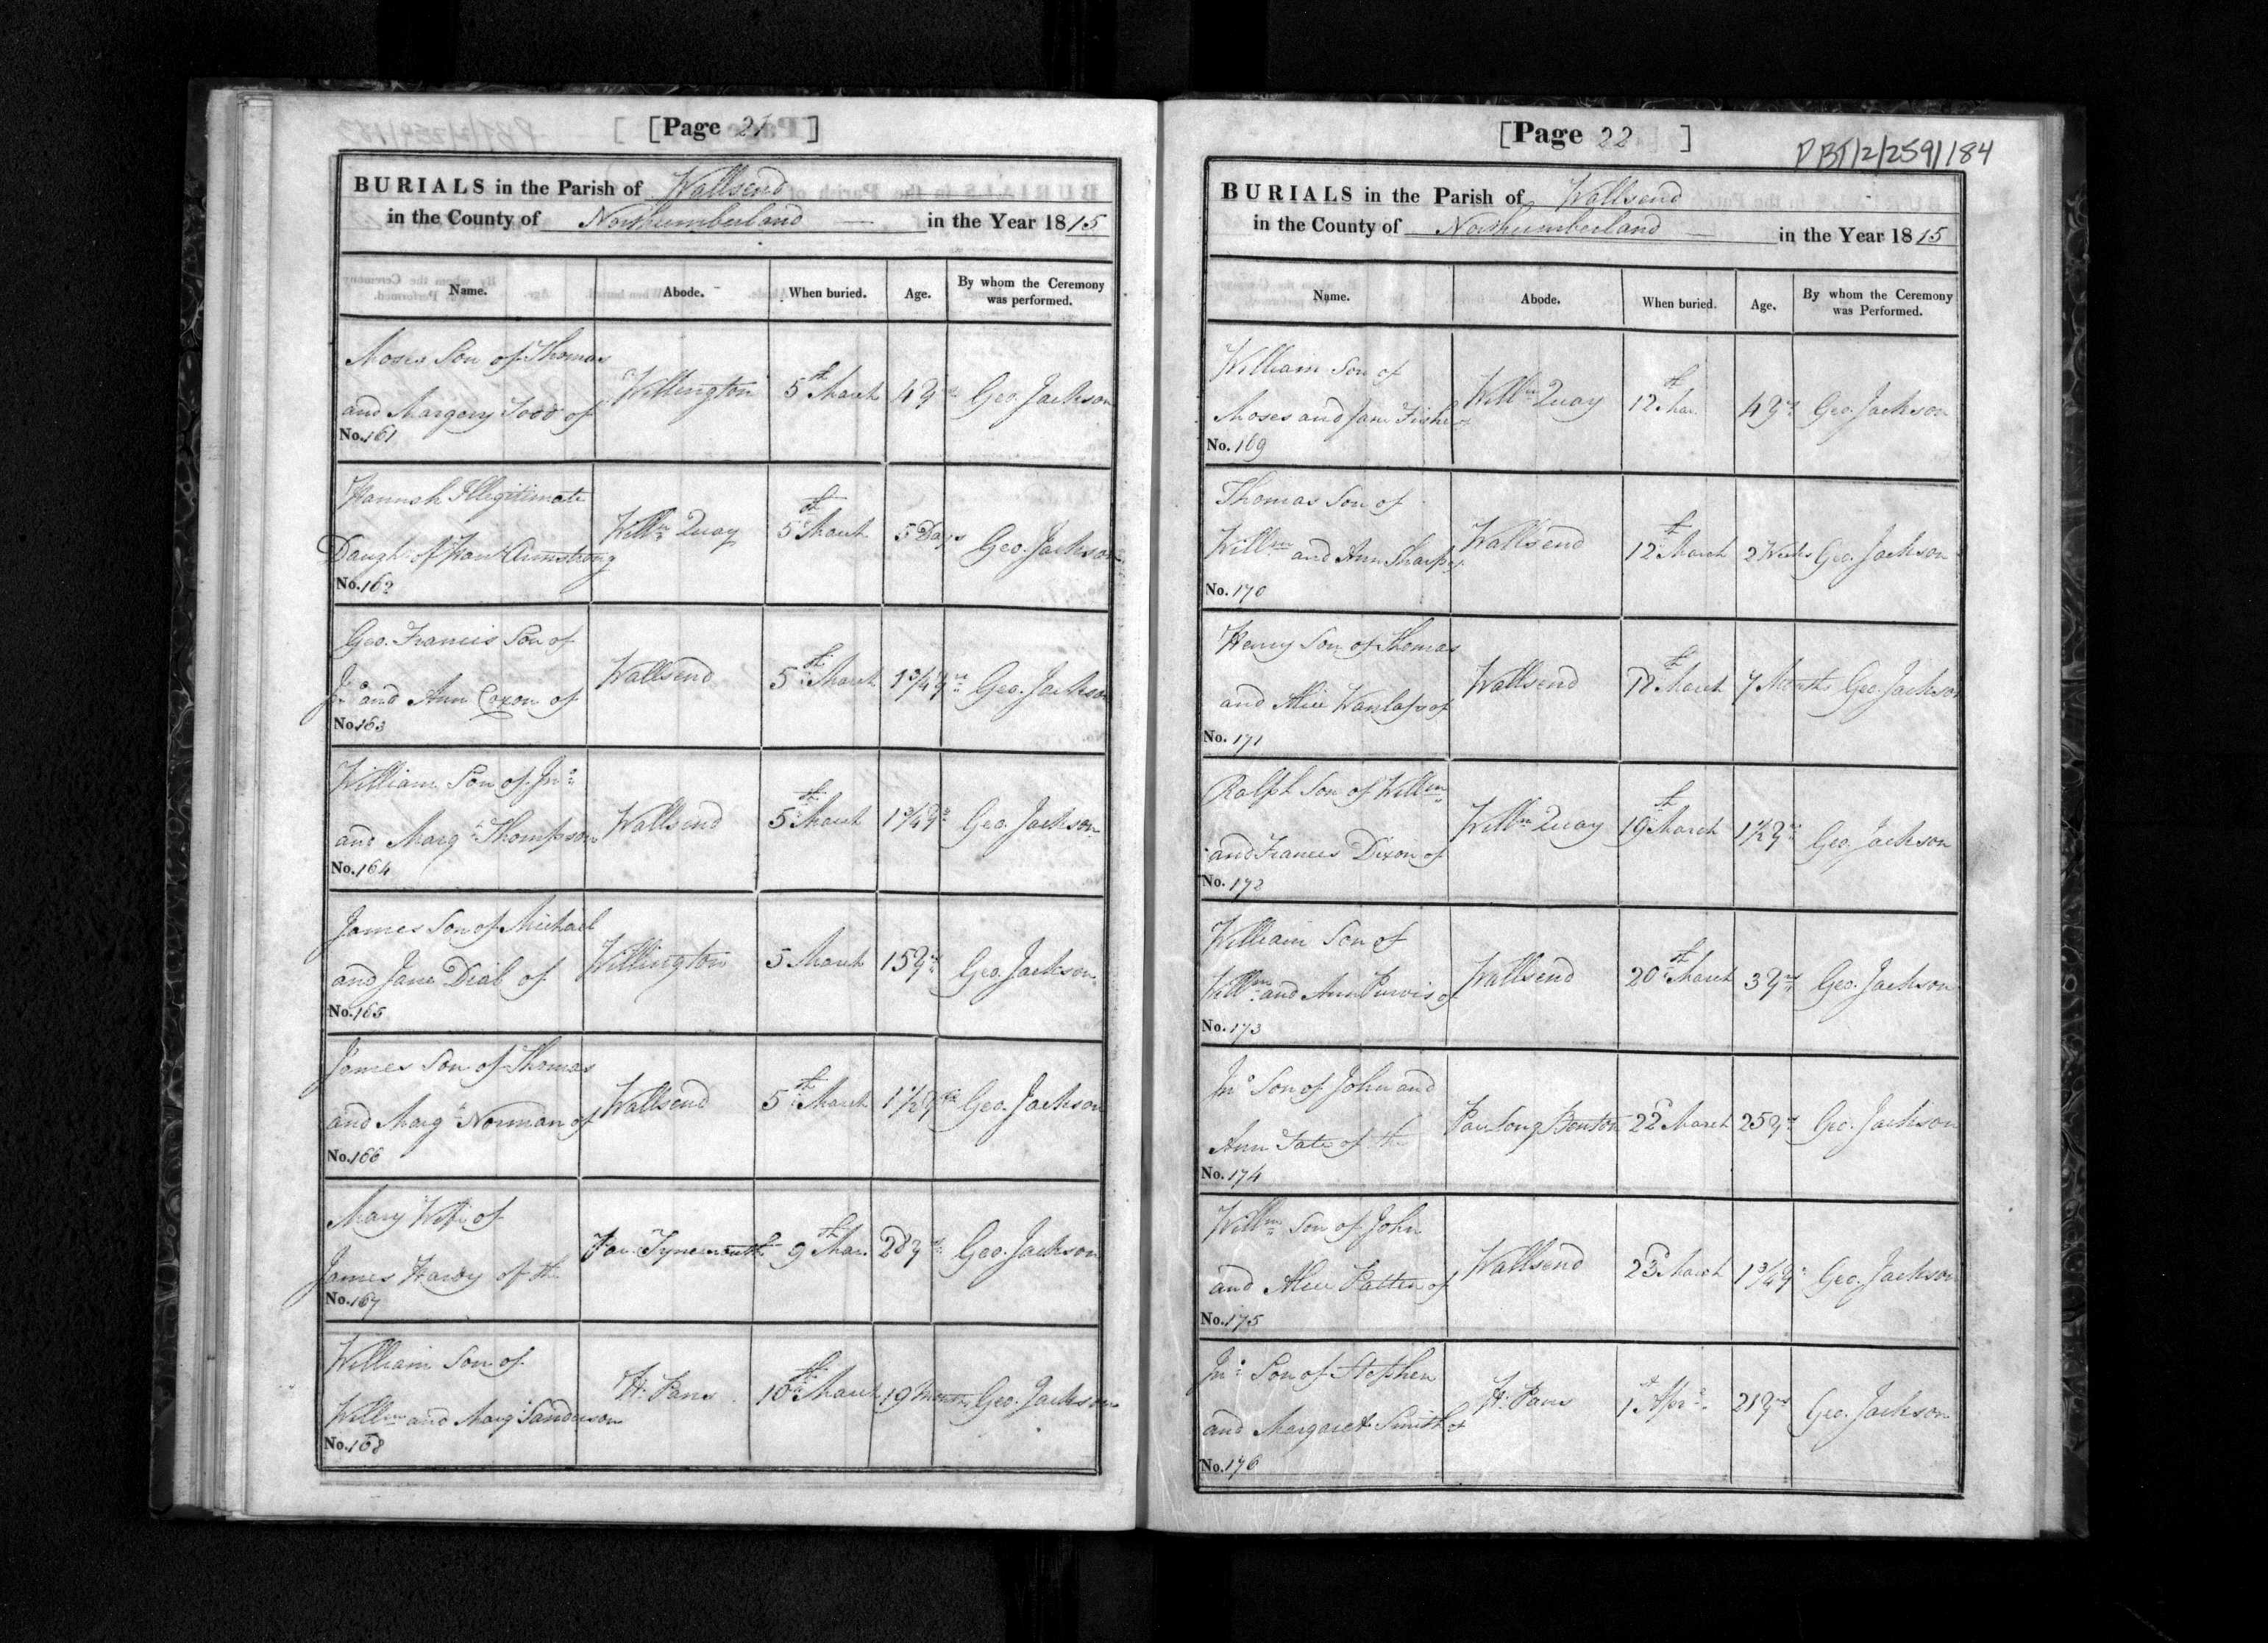 [Page 21]
BURIALS in the Parish of Wallsend
in the County of Northumberland in the Year 1815
Name. Abode. When buried. Age. By whom the Ceremony was performed.
Moses Son of Thomas
and Margery Todd of Willington 5th March 4 Yrs Geo. Jackson
No. 161
Hannah Illegitimate
Daugh. of Han. Armstrong Willn Quay 5th March 5 Days Geo. Jackson
No. 162
Geo. Francis Son of
Jno and Ann Coxon of Wallsend 5th March 1 3/4 Yrs Geo. Jackson
No. 163
William Son of Jno
and Margt Thompson Wallsend 5th March 1 3/4 Yrs Geo. Jackson
No. 164
James Son of Michael
and Jane Dial of Willington 5 March 15 Yrs Geo. Jackson
No. 165
James Son of Thomas
and Margt Norman of Wallsend 5th March 1 1/2 Yrs Geo. Jackson
No. 166
Mary Wife of
James Hardy of the Par. Tynemouth 9th Mar. 28 Yrs Geo. Jackson
No. 167
William Son of
Willm and Margt Sanderson H. Pans 10th March 19 Months Geo. Jackson
No. 168
[Page 22]
DBT/2/259/184
BURIALS in the Parish of Wallsend
in the County of Northumberland in the Year 1815
Name. Abode. When buried. Age. By whom the Ceremony was Performed.
William Son of
Moses and Jane Fisher of Willn Quay 12th Mar. 4 Yrs Geo. Jackson
No. 169
Thomas Son of
Willm and Ann Sharp of Wallsend 12th March 2 Weeks Geo. Jackson
No. 170
Henry Son of Thomas
and Alice Wanlass of Wallsend March 7 Months Geo. Jackson
No. 171
Ralph Son of Willm
and Frances Dixon of Willn Quay 19th March 1 1/2 Yrs Geo. Jackson
No. 172
William Son of
Willm and Ann Purvis of Wallsend 20th March 3 Yrs Geo. Jackson
No. 173
Jno Son of John and
Ann Tate of the Par. Long Benton 22d March 25 Yrs Geo. Jackson
No. 174
Willm Son of John
and Alice Patten of Wallsend 23d March 1 3/4 Yrs Geo. Jackson
No. 175
Jno Son of Stephen
and Margaret Smith of H. Pans 1st Aprl 21 Yrs Geo. Jackson
No. 176